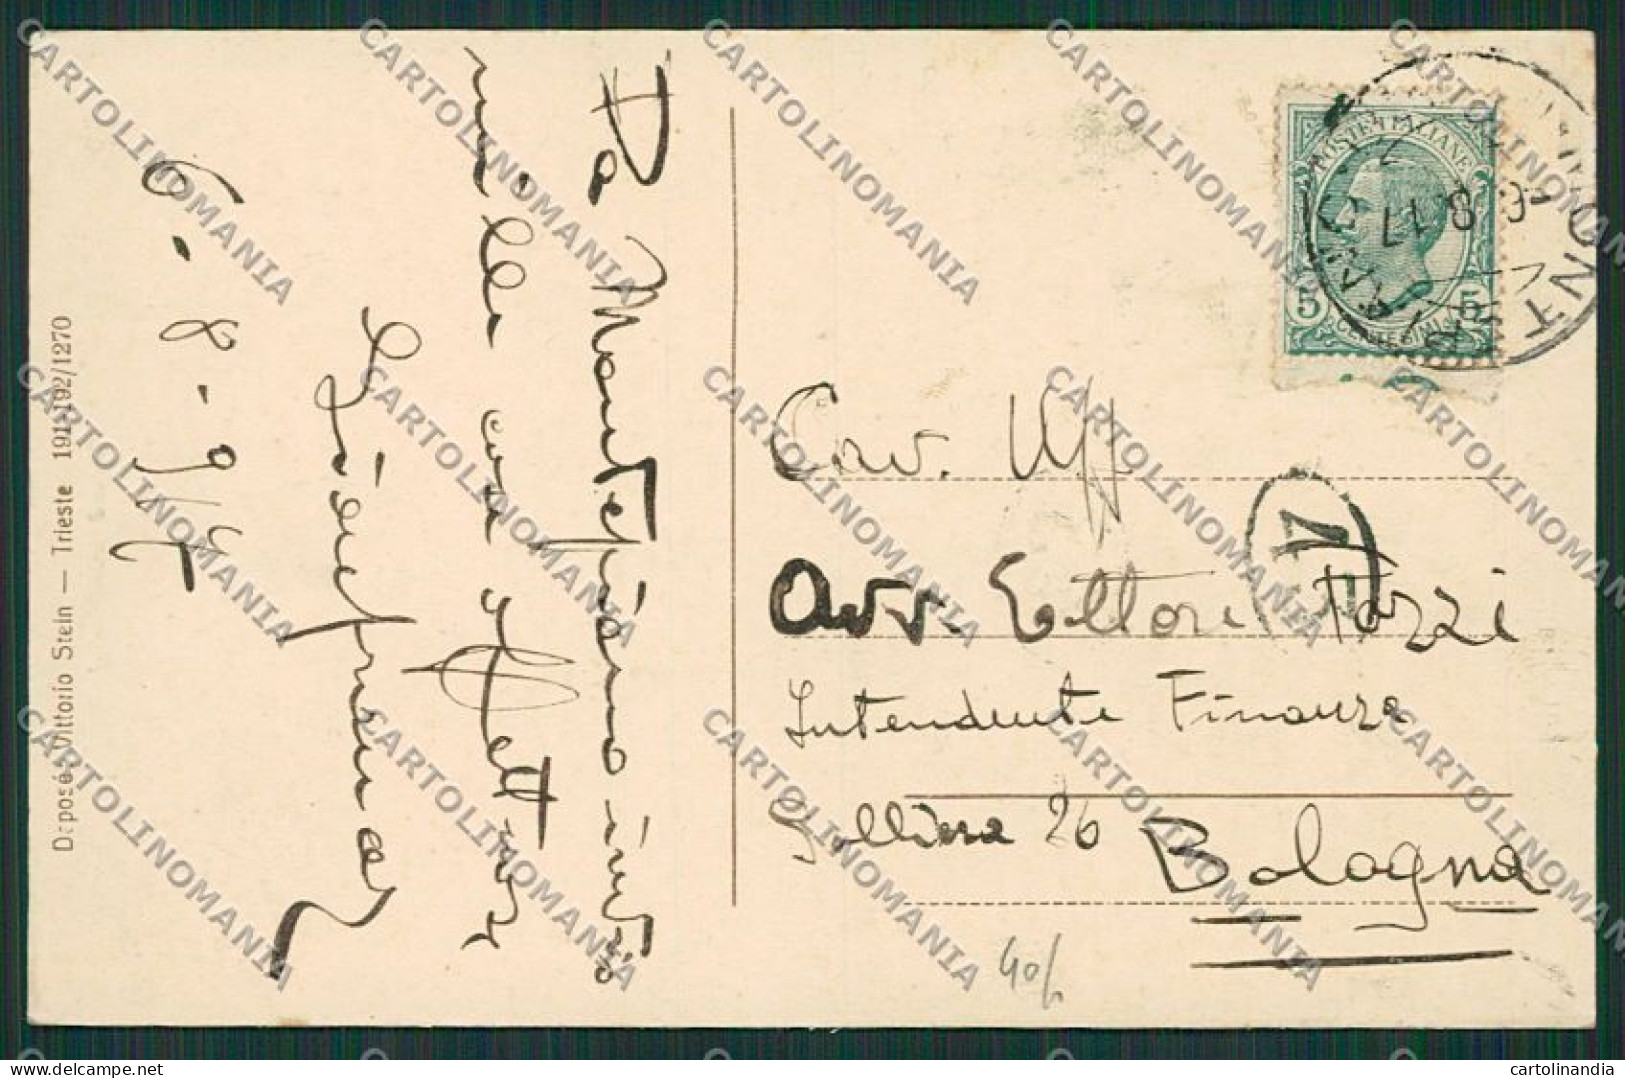 Da Montepiano invio
mille cari
6-8-917
Deposé Vittorio Stein — Trieste 1911-192/1270
POSTE ITALIANE
5 CENTESIMI 5
6.8.17
Cav. Uff
Avv. Ettore Pozzi
Intendente Finanza
Galliera 26
Bologna
40/
CARTOLINOMANIA
cartolinandia